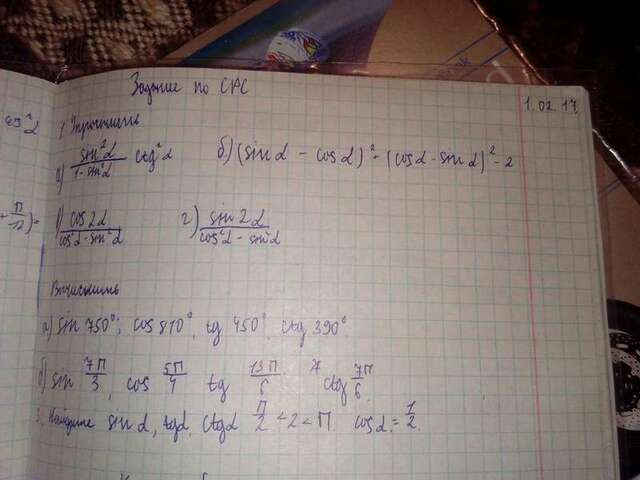 Задание по СРС
1.02.17.
1. Упростить
а) sin²α / 1-sin²α ctg²α б) (sin α - cos α)² - (cos α - sin α)² - 2
в) cos 2α / cos²α - sin²α г) sin 2α / cos²α - sin²α
Вычислить
а) sin 750°; cos 810°, tg 450°, ctg 390°.
б) sin 7π/3, cos 5π/4 tg 13π/6 ctg 7π/6.
3. Найдите sin α, tgα, ctgα π/2 < 2 < π. cos α = 1/2.